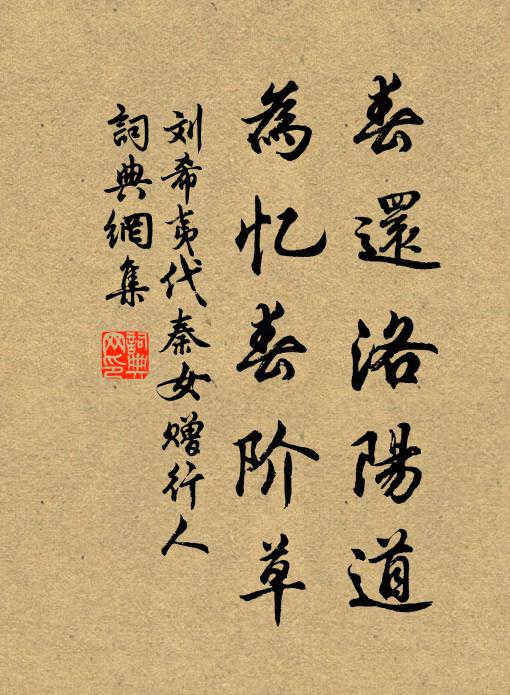 春還洛陽道
為忆春阶草
刘希夷代秦女赠行人
詞典網集
詞典網印